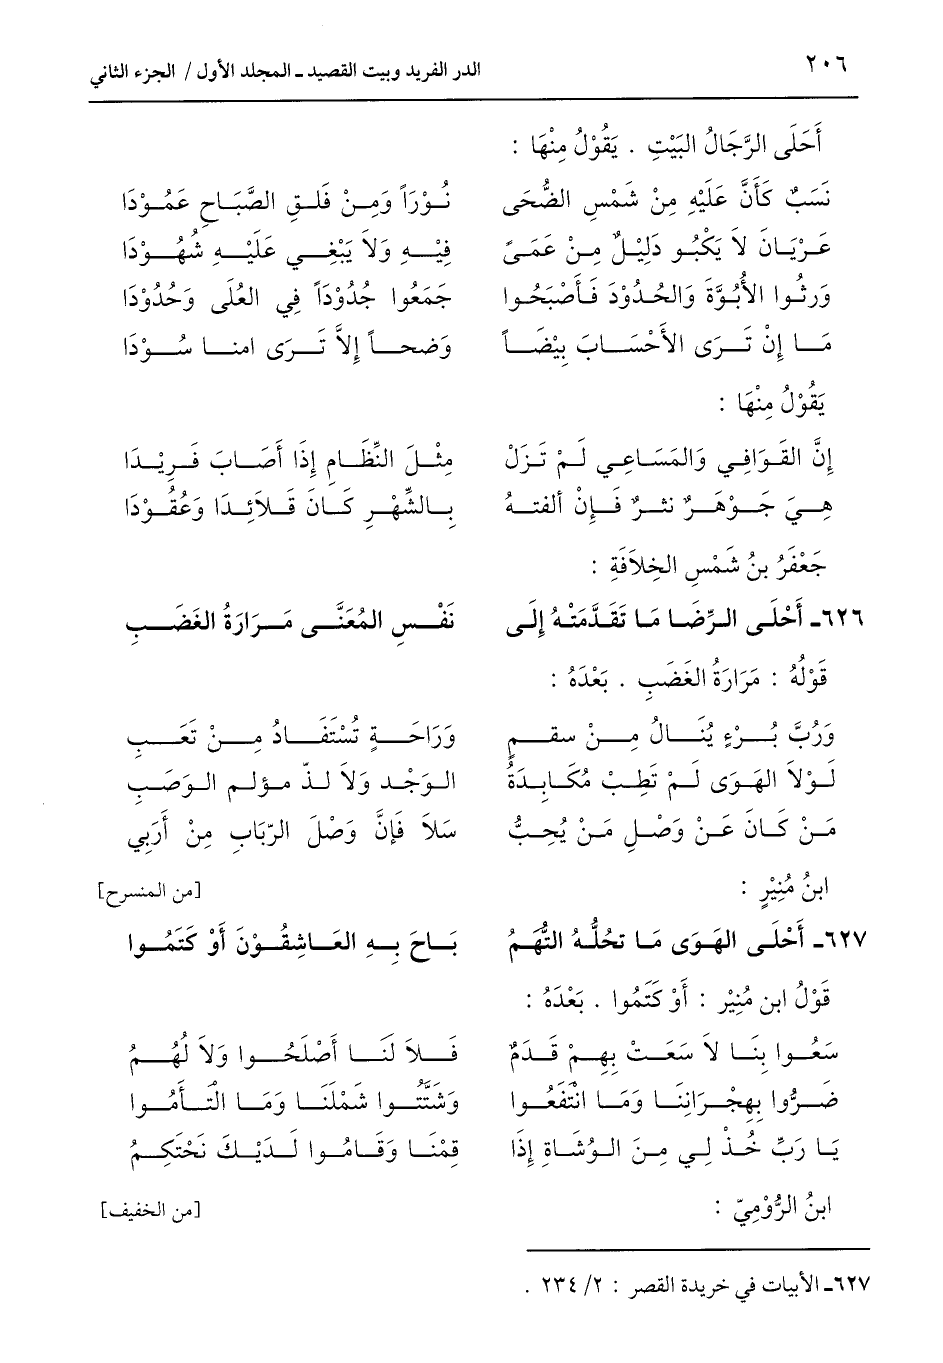 ٢٠٦ الدر الفريد وبيت القصيد ـ المجلد الأول / الجزء الثاني
أَحَلَى الرَّجَالُ البَيْتِ . يَقُوْلُ مِنْهَا :
نَسَبٌ كَأَنَّ عَلَيْهِ مِنْ شَمْسِ الضُّحَى نُوْرَاً وَمِنْ فَلَقِ الصَّبَاحِ عَمُوْدَا
عَرْيَانَ لاَ يَكْبُو دَلِيْلٌ مِنْ عَمَىً فِيْهِ وَلاَ يَبْغِي عَلَيْهِ شُهُوْدَا
وَرِثُوا الأُبُوَّةَ وَالحُدُوْدَ فَأَصْبَحُوا جَمَعُوا جُدُوْدَاً فِي العُلَى وَجُدُوْدَا
مَا إِنْ تَرَى الأَحْسَابَ بِيْضَاً وَضحاً إِلاَّ تَرَى امنا سُوْدَا
يَقُوْلُ مِنْهَا :
إِنَّ القَوَافِي وَالمَسَاعِي لَمْ تَزَلْ مِثْلَ النِّظَامِ إِذَا أَصَابَ فَرِيْدَا
هِيَ جَوْهَرٌ نثرٌ فَإِنْ ألفتهُ بِالشِّهْرِ كَانَ قَلاَئِدَا وَعُقُوْدَا
جَعْفَرُ بنُ شَمْسِ الخِلاَفَةِ :
٦٢٦ـ أَحْلَى الرِّضَا مَا تَقَدَّمَتْهُ إِلَى نَفْسِ المُعَنَّى مَرَارَةُ الغَضَبِ
قَوْلُهُ : مَرَارَةُ الغَضَبِ . بَعْدَهُ :
وَرُبَّ بُرْءٍ يُنَالُ مِنْ سقمٍ وَرَاحَةٍ تُسْتَفَادُ مِنْ تَعَبِ
لَوْلاَ الهَوَى لَمْ تَطِبْ مُكَابِدَةُ الوَجْدِ وَلاَ لَذَّ مؤلم الوَصَبِ
مَنْ كَانَ عَنْ وَصْلِ مَنْ يُحِبُّ سَلاَ فَإِنَّ وَصْلَ الرّبَابِ مِنْ أَرَبِي
ابنُ مُنِيْرٍ : [من المنسرح]
٦٢٧ـ أَحْلَى الهَوَى مَا تحُلَّهُ التُّهَمُ بَاحَ بِهِ العَاشِقُوْنَ أَوْ كَتَمُوا
قَوْلُ ابنِ مُنِيْرٍ : أَوْ كَتَمُوا . بَعْدَهُ :
سَعُوا بِنَا لاَ سَعَتْ بِهِمْ قَدَمٌ فَلاَ لَنَا أَصْلَحُوا وَلاَ لَهُمُ
ضَرُّوا بِهِجْرَانِنَا وَمَا انْتَفَعُوا وَشَتَّتُوا شَمْلَنَا وَمَا التَأَمُوا
يَا رَبِّ خُذْ لِي مِنَ الوُشَاةِ إِذَا قِمْنَا وَقَامُوا لَدَيْكَ نَحْتَكِمُ
ابنُ الرُّوْمِيّ : [من الخفيف]
٦٢٧ـ الأبيات في خريدة القصر : ٢/ ٢٣٤ .